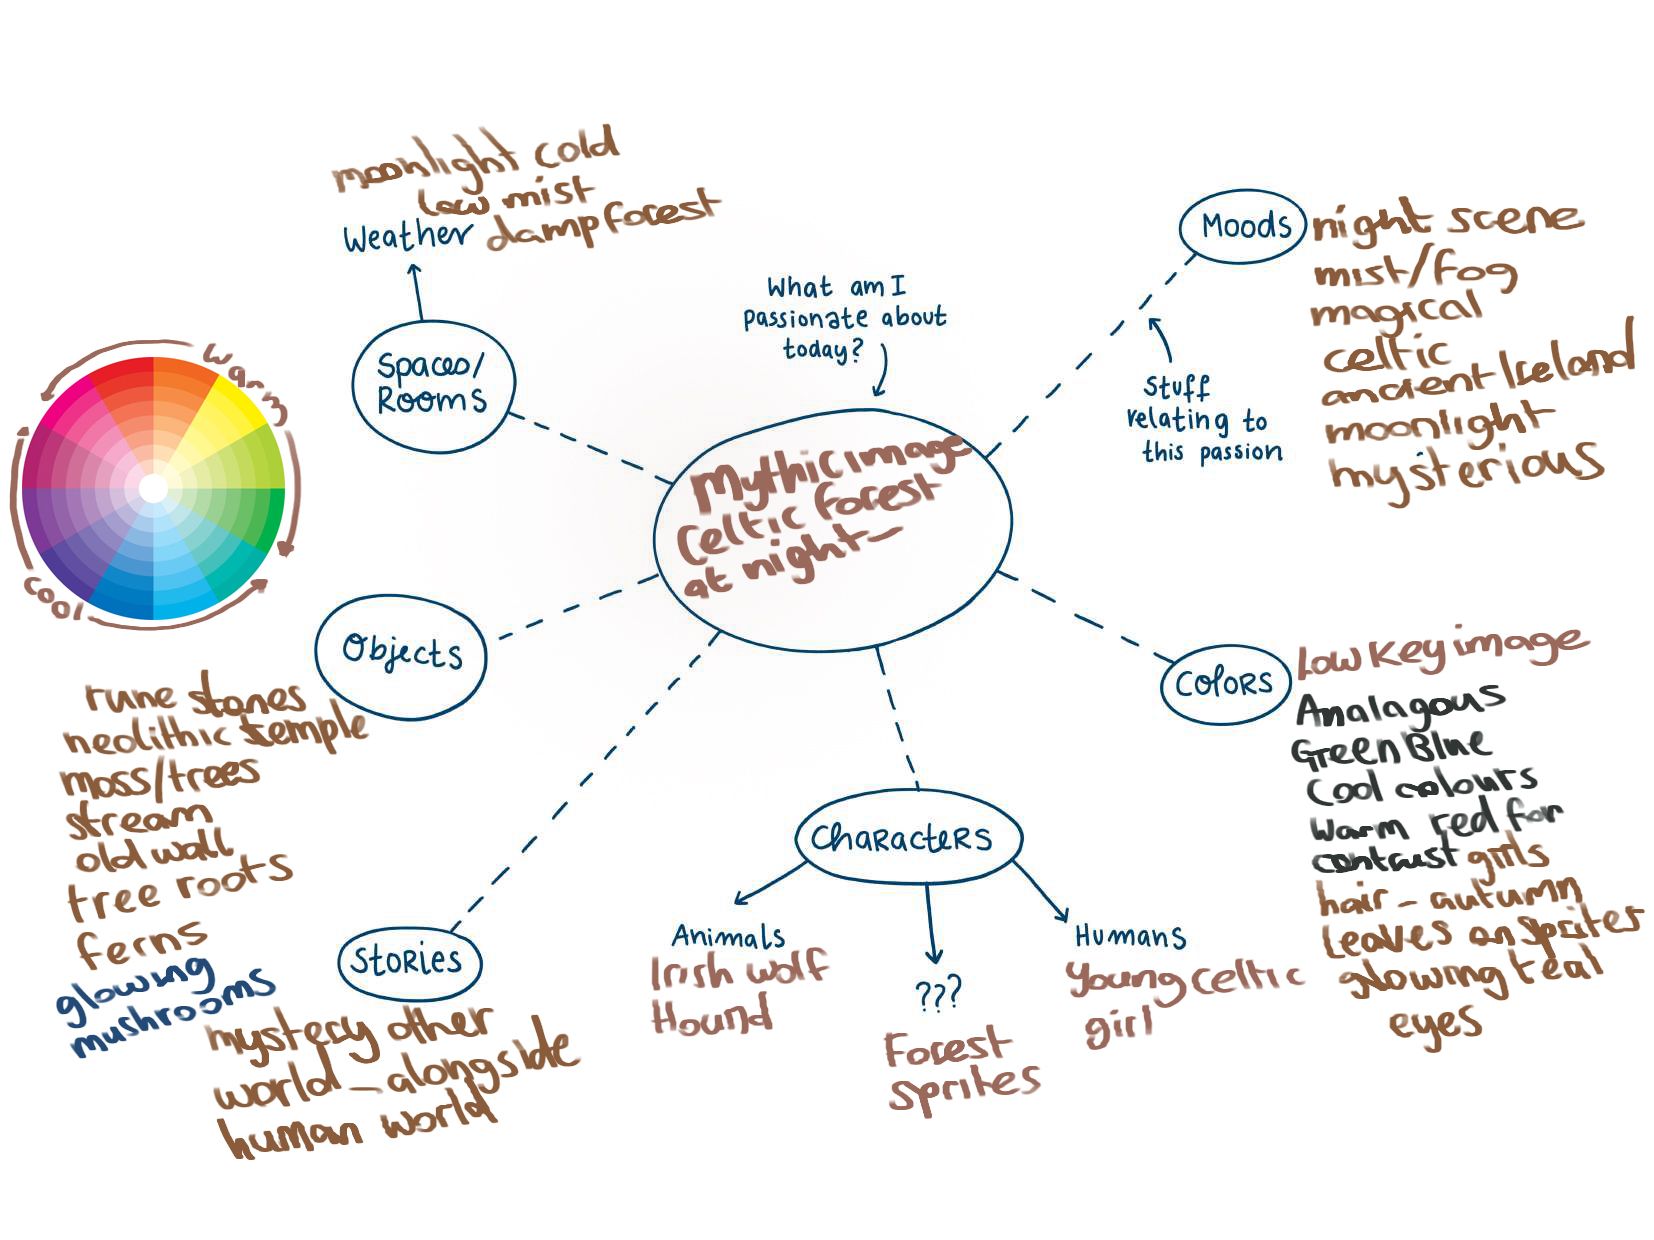 moonlight cold
low mist
damp forest
Weather
Spaces/
Rooms
warm
cool
What am I
passionate about
today?
Mythic image
Celtic forest
at night-
Moods
night scene
mist/fog
magical
celtic
ancient Ireland
moonlight
mysterious
Stuff
relating to
this passion
Objects
rune stones
neolithic temple
moss/trees
stream
old wall
tree roots
ferns
glowing
mushrooms
Stories
mystery other
world - alongside
human world
Characters
Animals
Irish wolf
Hound
???
Forest
sprites
Humans
Young celtic
girl
Colors
Low Key image
Analagous
Green Blue
Cool colours
Warm red for
contrast girls
hair - autumn
leaves on sprites
glowing teal
eyes